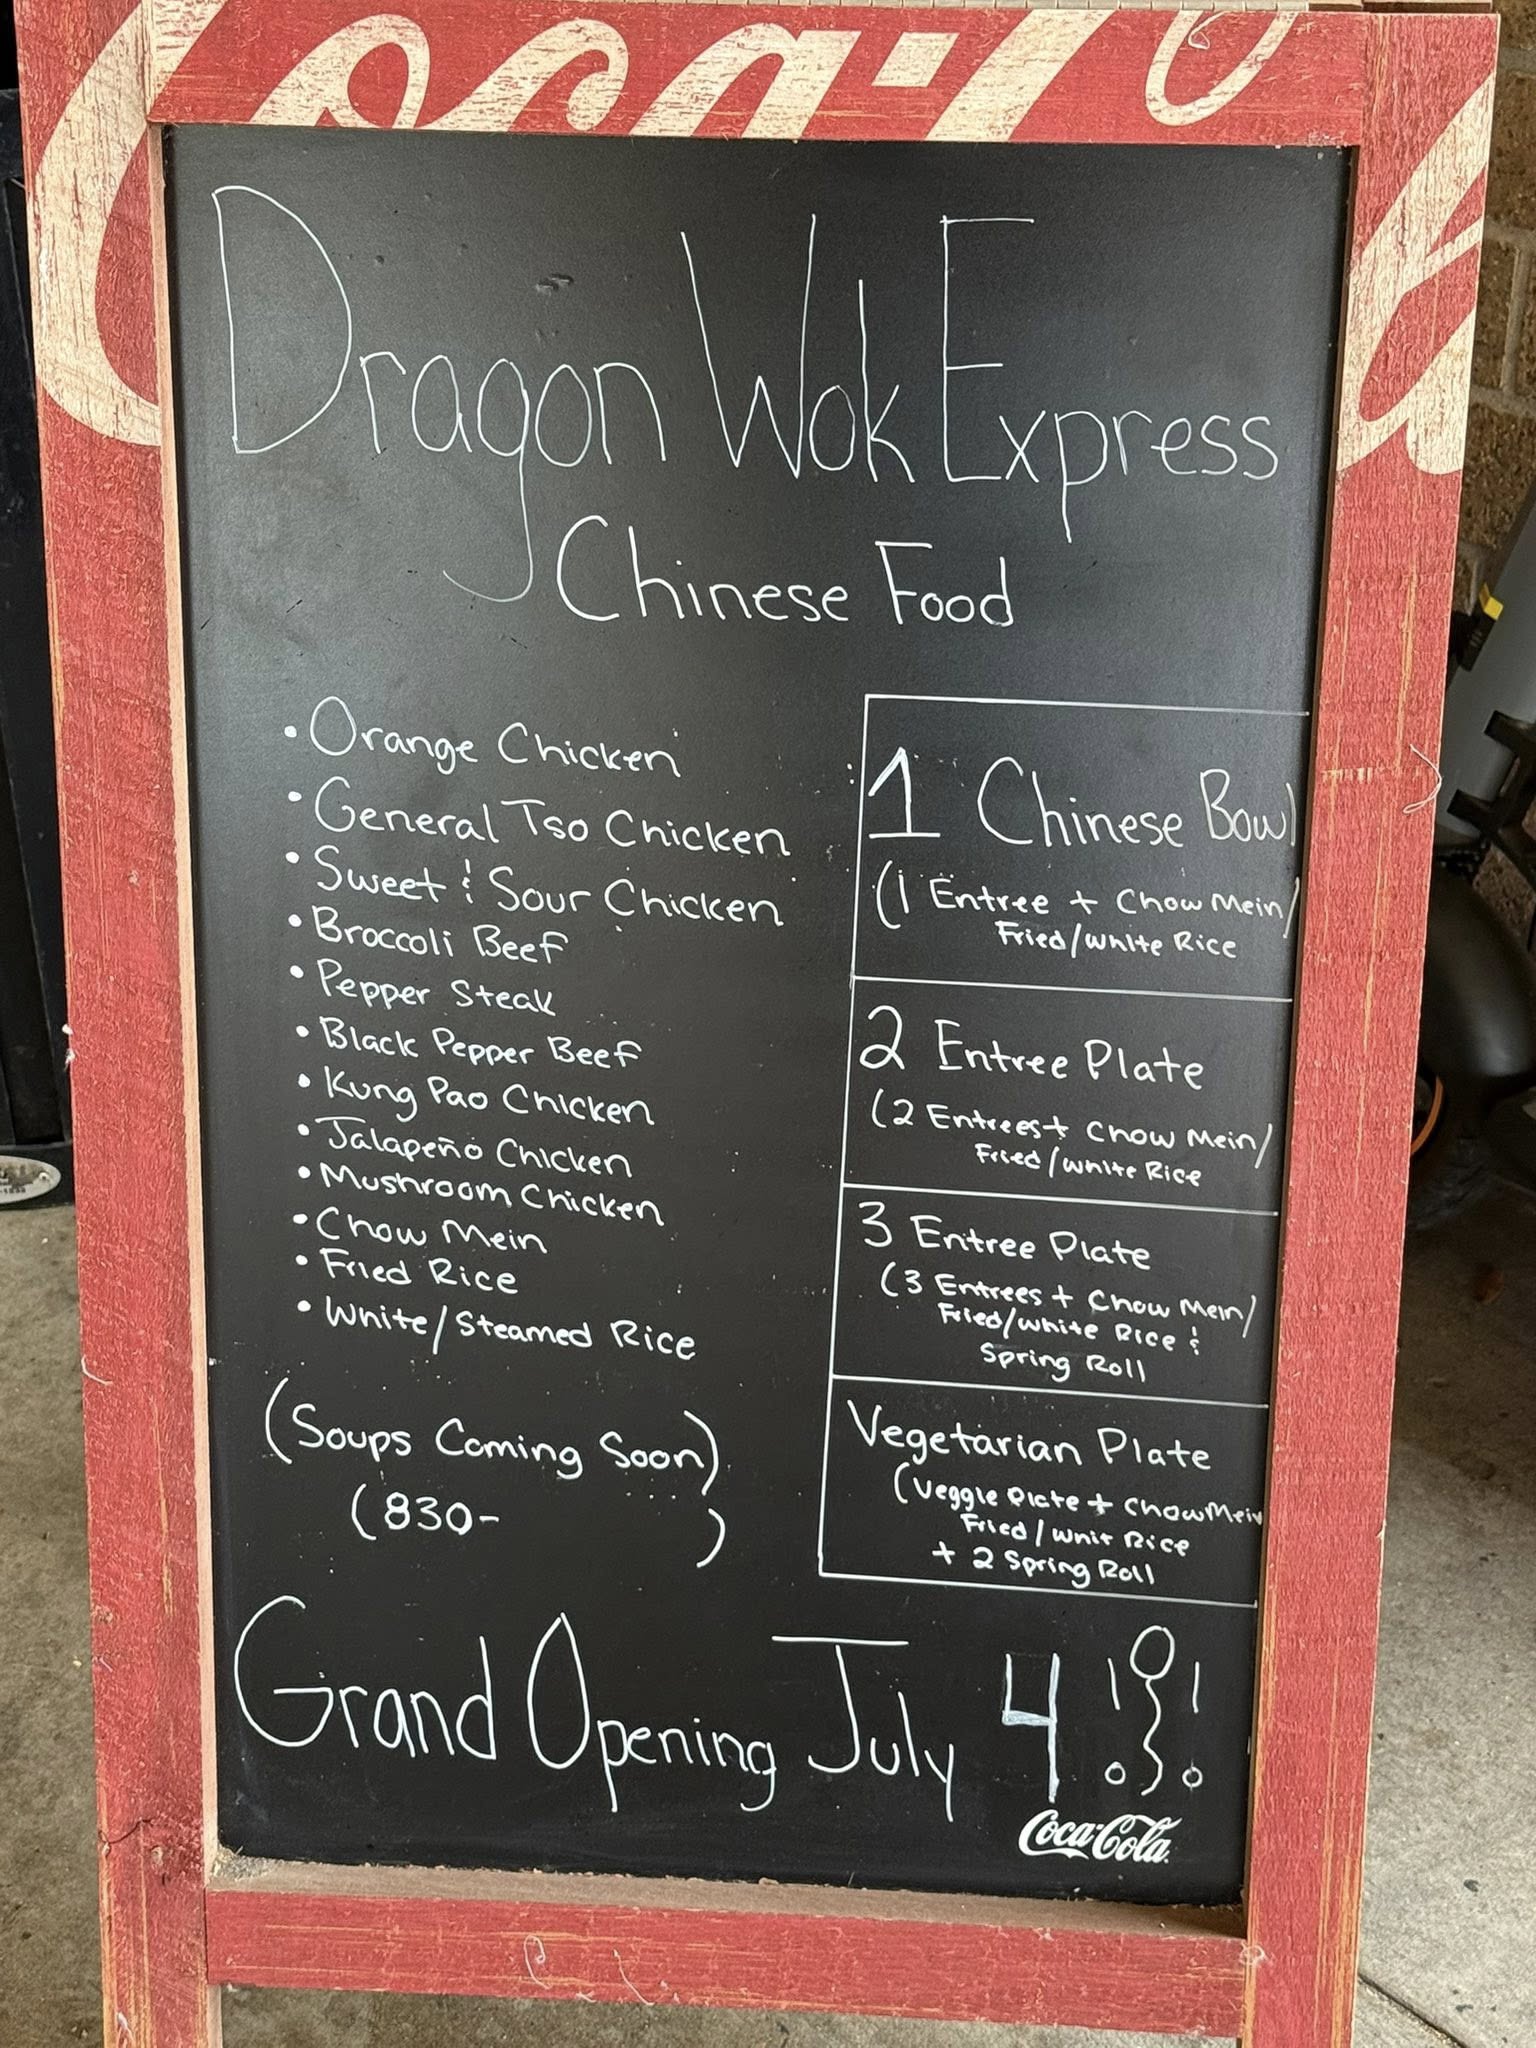 Coca-Co
Dragon Wok Express
Chinese Food
• Orange Chicken
• General Tso Chicken
• Sweet & Sour Chicken
• Broccoli Beef
• Pepper Steak
• Black Pepper Beef
• Kung Pao Chicken
• Jalapeño Chicken
• Mushroom Chicken
• Chow Mein
• Fried Rice
• White/Steamed Rice
(Soups Coming Soon)
(830- )
1 Chinese Bowl
(1 Entree + Chow Mein/
Fried/White Rice
2 Entree Plate
(2 Entrees + Chow Mein/
Fried/White Rice
3 Entree Plate
(3 Entrees + Chow Mein/
Fried/White Rice &
Spring Roll
Vegetarian Plate
(Veggie Plate + Chow Mein
Fried/Whit Rice
+ 2 Spring Roll
Grand Opening July 4
Coca-Cola